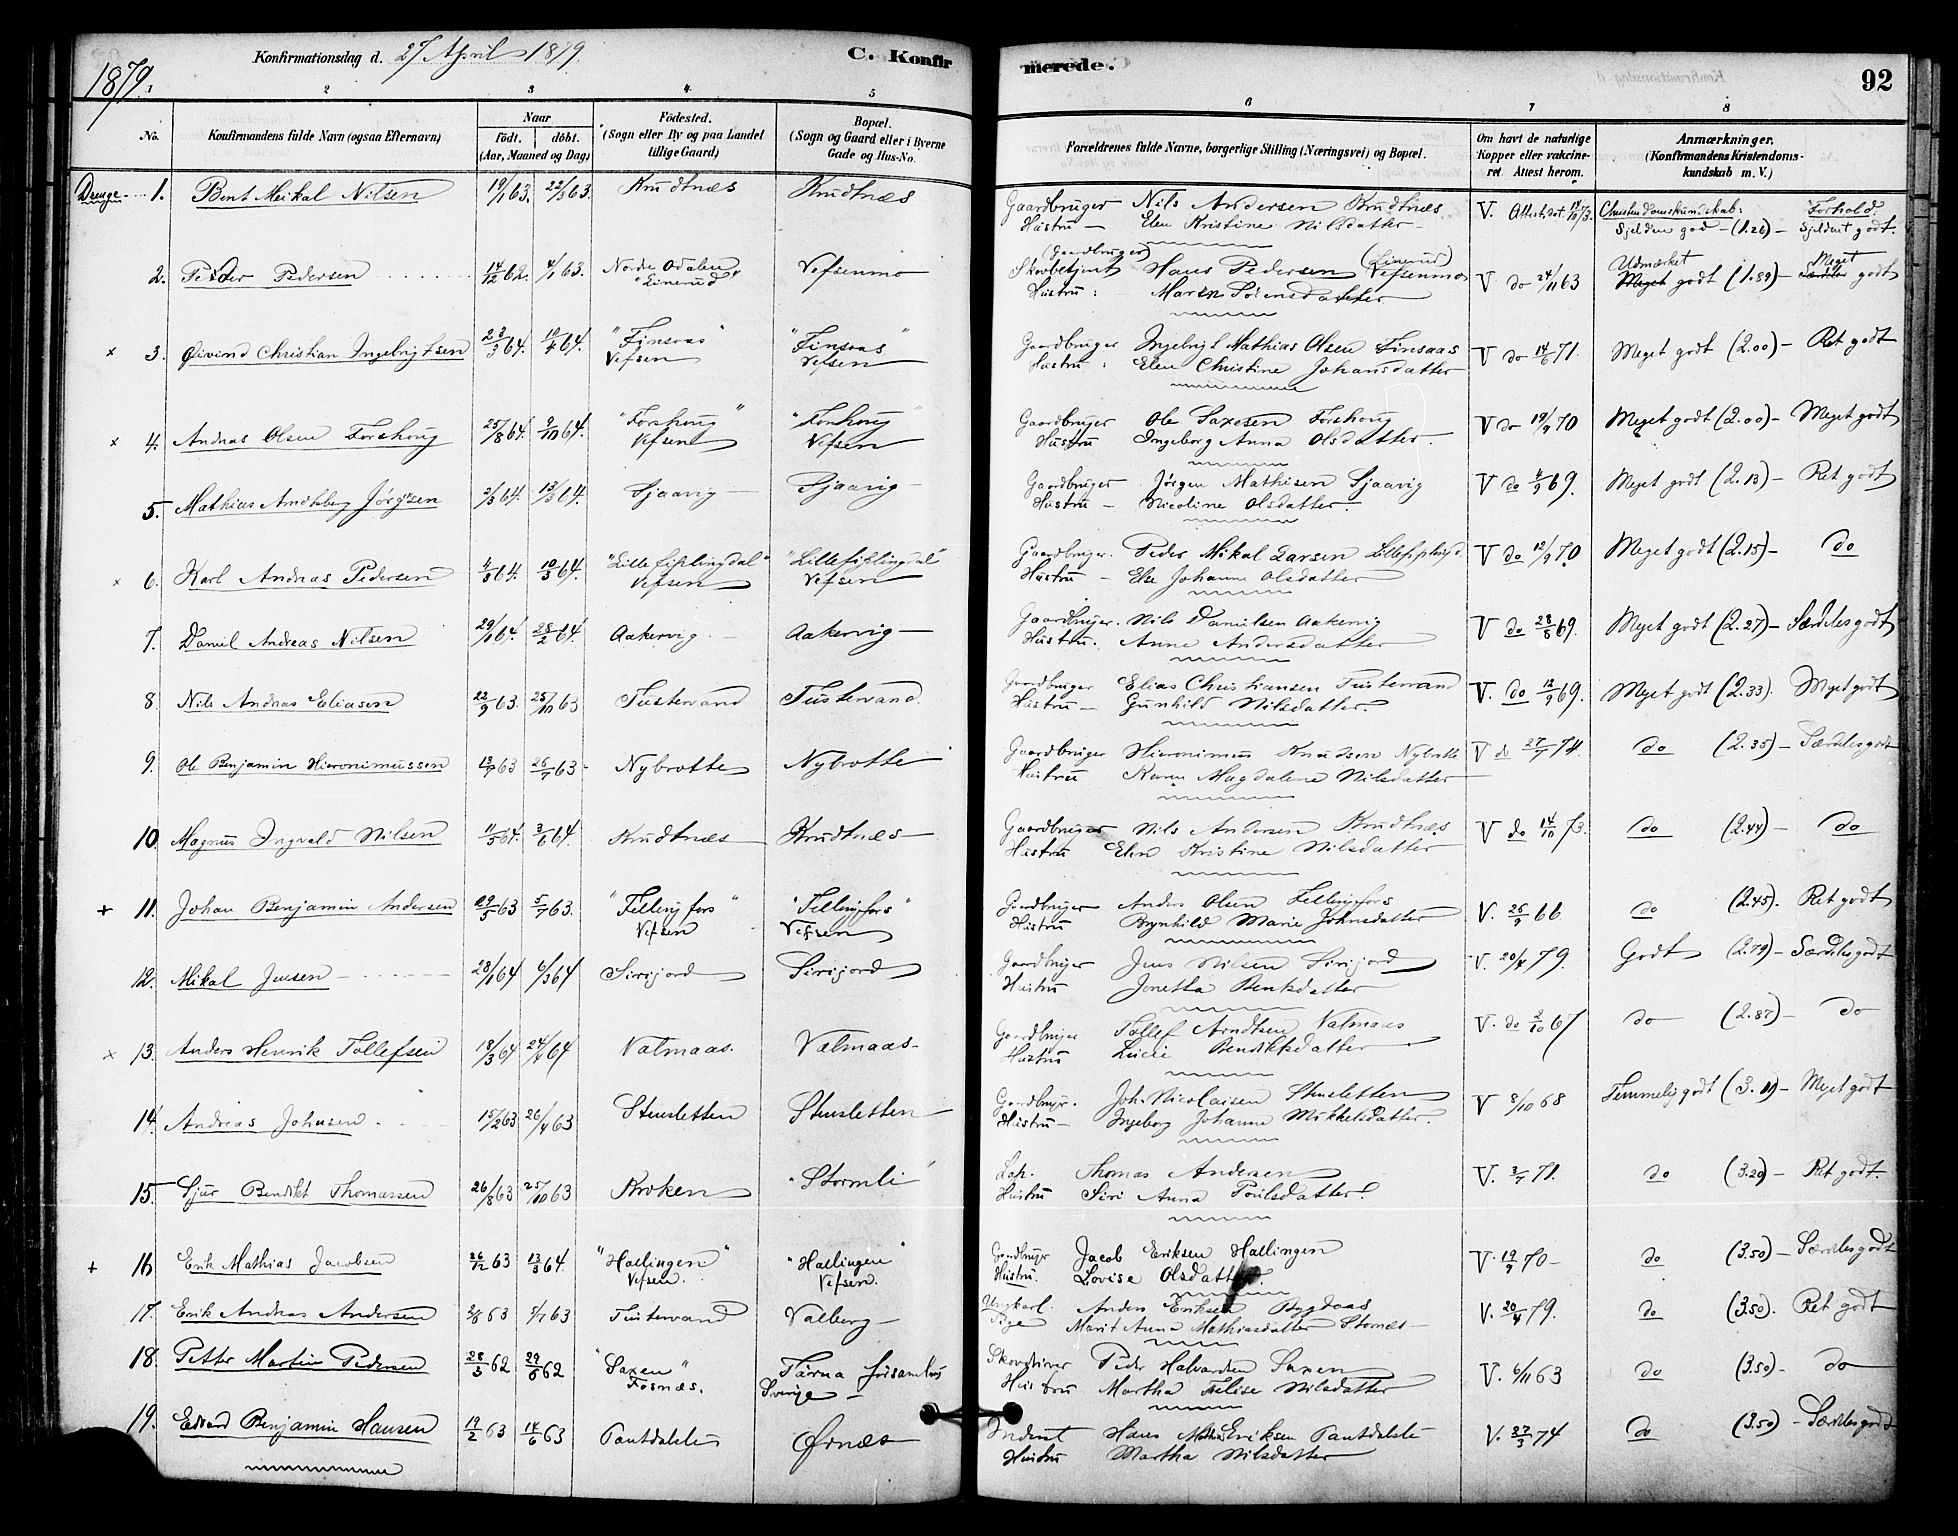 Konfirmationsdag d. 27 April 1879. C. Konfirmerede. 92
1879.
1 2 3 4 5 6 7 8
No. Konfirmandens fulde Navn (ogsaa Efternavn)
Naar födt. döbt. (Aar, Maaned og Dag)
Födested. (Sogn eller By og paa Landet tillige Gaard)
Bopæl. (Sogn og Gaard eller i Byerne Gade og Hus-No.
Forældrenes fulde Navne, borgerlige Stilling (Næringsvei) og Bopæl.
Om havt de naturlige Kopper eller vakcineret. Attest herom.
Anmærkninger. (Konfirmandens Kristendomskundskab m. V.)
Drenge 1. Bent Mikal Nilsen 19/1 63. 22/3 63. Krudtnæs Krudtnæs Gaardbruger Nils Andersen Krudtnæs V. Attest dat. 14/10 73. Christendomskundskab: Forhold.
Hustru Elen Kristine Nilsdatter Sjelden god (1.26) – Sjeldent godt.
2. Peder Pedersen 14/12 62. 4/1 63. Norde Odalen "Linerud" Vefsenmo (Gaardbruger) Skovbetjent Hans Pedersen (Linerud) Vefsenmo V do 24/11 63 Udmærket godt (1.89) – Meget godt
Hustru: Maren Sörensdatter
x 3. Øivind Christian Ingebrigtsen 23/3 64. 19/4 64. "Finsaas" Vefsen "Finsaas" Vefsen Gaardbruger Ingebrigt Mathias Olsen Finsaas V do 14/6 71. Meget godt (2.00) – Ret godt
Hustru: Elen Christine Johansdatter
x 4. Andreas Olsen Forshoug 25/8 64. 9/10 64. "Forshoug" Vefsen "Forshoug" Vefsen Gaardbruger Ole Saxesen Forshoug V do 19/9 70 Meget godt (2.00) – Meget godt
Hustru Ingeborg Anna Olsdatter.
5. Mathias Arndtsberg Jörgensen 2/3 64. 13/3 64. Sjaavig Sjaavig Gaardbruger Jörgen Mathisen Sjaavig V do 4/9 69. Meget godt (2.13) – Ret godt
Hustru – Nicoline Olsdatter.
x 6. Karl Andreas Pedersen 4/3 64. 10/3 64. "Lillefiplingdal" Vefsen "Lillefiplingdal" Vefsen Gaardbruger. Peder Mikal Larsen V do 12/9 70 Meget godt (2.15) – do
Hustru – Else Johanne Olsdatter
7. Daniel Andreas Nilsen 29/1 64. 28/2 64 Aakervig Aakervig Gaardbruger. Nils Danielsen Aakervig V do 28/8 69. Meget godt (2.27) – Særdeles godt
Hustru. Anne Andersdatter
8. Nils Andreas Eliasen 22/9 63. 25/10 63 Tustervand Tustervand. Gaardbruger Elias Christiansen Tustervand V. do 12/9 69. Meget godt (2.33). Meget godt
Hustru – Gunhild Nilsdatter.
9. Ole Benjamin Hieronimussen 13/7 63 26/7 63 Nybrotte Nybrotte Gaardbruger Hieronimus Knudsen Nybrotte V do 27/7 74. do (2.35) – Særdeles godt
Hustru Karen Magdalene Nilsdatter
10. Magnus Ingvald Nilsen 11/5 64. 3/6 64. Krudtnæs Krudtnæs Gaardbruger Nils Andersen Krudtnæs V do 14/10 73. do (2.44) – do
Hustru Elen Kristine Nilsdatter
+ 11. Johan Benjamin Andersen 29/5 63 5/7 63. "Fellingfors" Vefsen "Fellingfors" Vefsen Gaardbruger Anders Olsen Fellingfors V. 26/9 66 do (2.45). Ret godt
Hustru Brynhild Marie Johnsdatter
12. Mikal Jensen 28/1 64 6/3 64 Sirijord Sirijord Gaardbruger Jens Nilsen Sirijord V. 20/4 79. Godt (2.79) – Særdeles godt
Hustru Jonetta Bentsdatter
x 13. Anders Henrik Tollefsen 18/3 64 24/4 64 Valmaas. Valmaas Gaardbruger Tollef Arndtsen Valmaas V. do 2/10 67 do (2.87) – do
Hustru Lucie Bendiktsdatter
14. Andreas Johnsen 15/2 63 26/4 63 Stensletten Stensletten Gaardbruger. Joh. Nicolaisen Stensletten V 8/10 68 Temmelig godt (3.11) – Meget godt
Hustru – Ingeborg Johanne Mikkelsdatter.
15. Sjur Bendikt Thomassen 26/8 63 25/10 63 Kroken "Stormli" Lap. Thomas Andersen V. 3/7 71. do (3.29) – Ret godt.
Hustru Siri Anna Poulsdatter.
+ 16 Erik Mathias Jacobsen 26/12 63 13/3 64. "Hallingen" Vefsen. "Hallingen" Vefsen. Gaardbruger Jacob Eriksen Hallingen V. 19/9 70 – do (3.50) – Særdeles godt
Hustru. Lovise Olsdatter.
17. Erik Andreas Andersen 2/6 63 5/7 63 Tustervand Valberg Ungkarl. Anders Eriksen Bygdaas V. 20/4 79. do (3.50). Ret godt
Pige Marit Anna Mathiasdatter Stornæs
18. Petter Martin Pedersen 28/3 62 29/6 62 "Saxen" Fosnæs. Tärna församling Sverige Peder Halvardsen Saxen V. 6/11 63 do (3.50) – do
Hustru Martha Felise Nilsdatter
19. Edvard Benjamin Hansen 19/2 63 14/6 63 Pantdalsli Ørnæs Inderst Hans Eriksen Pantdalsli V. 27/3 74 do (3.50) – Særdeles godt
Hustru Martha Nilsdatter